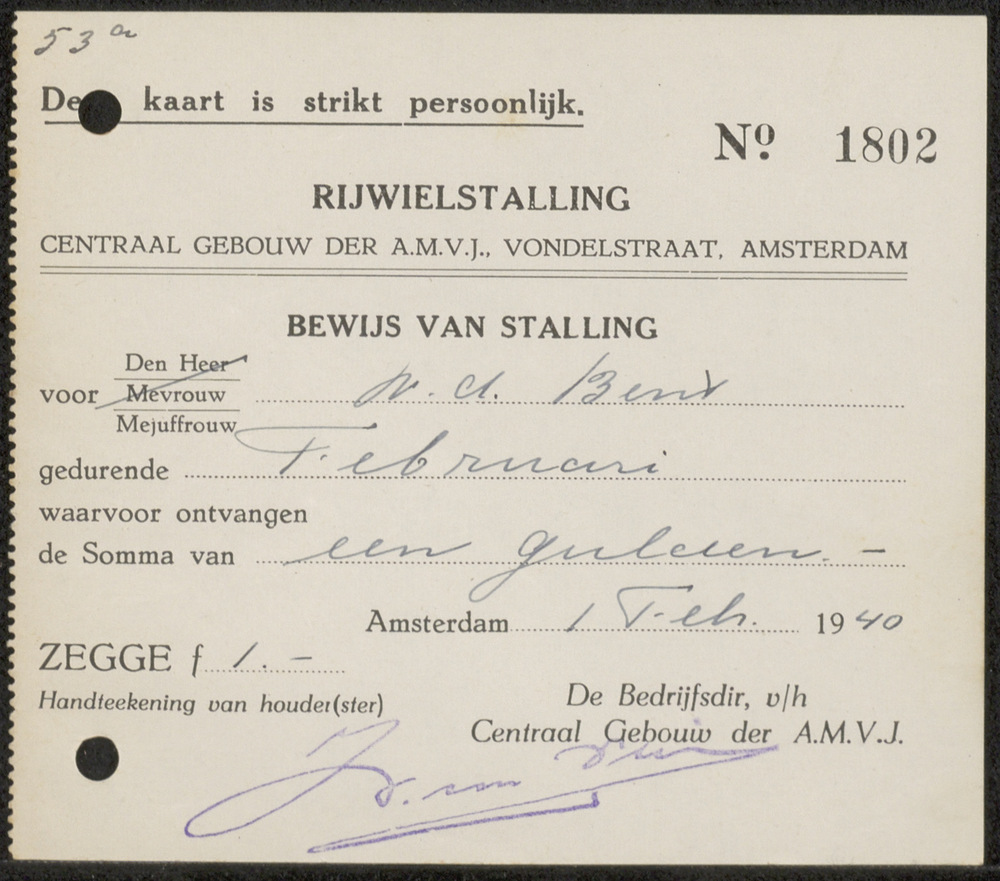 53 a
De kaart is strikt persoonlijk.
Nº 1802
RIJWIELSTALLING
CENTRAAL GEBOUW DER A.M.V.J., VONDELSTRAAT, AMSTERDAM
BEWIJS VAN STALLING
Den Heer
voor Mevrouw W. d. Bent
Mejuffrouw
gedurende Februari
waarvoor ontvangen
de Somma van een gulden. –
Amsterdam 1 Feb. 1940
ZEGGE f 1. –
Handteekening van houder(ster)
De Bedrijfsdir, v/h
Centraal Gebouw der A.M.V.J.